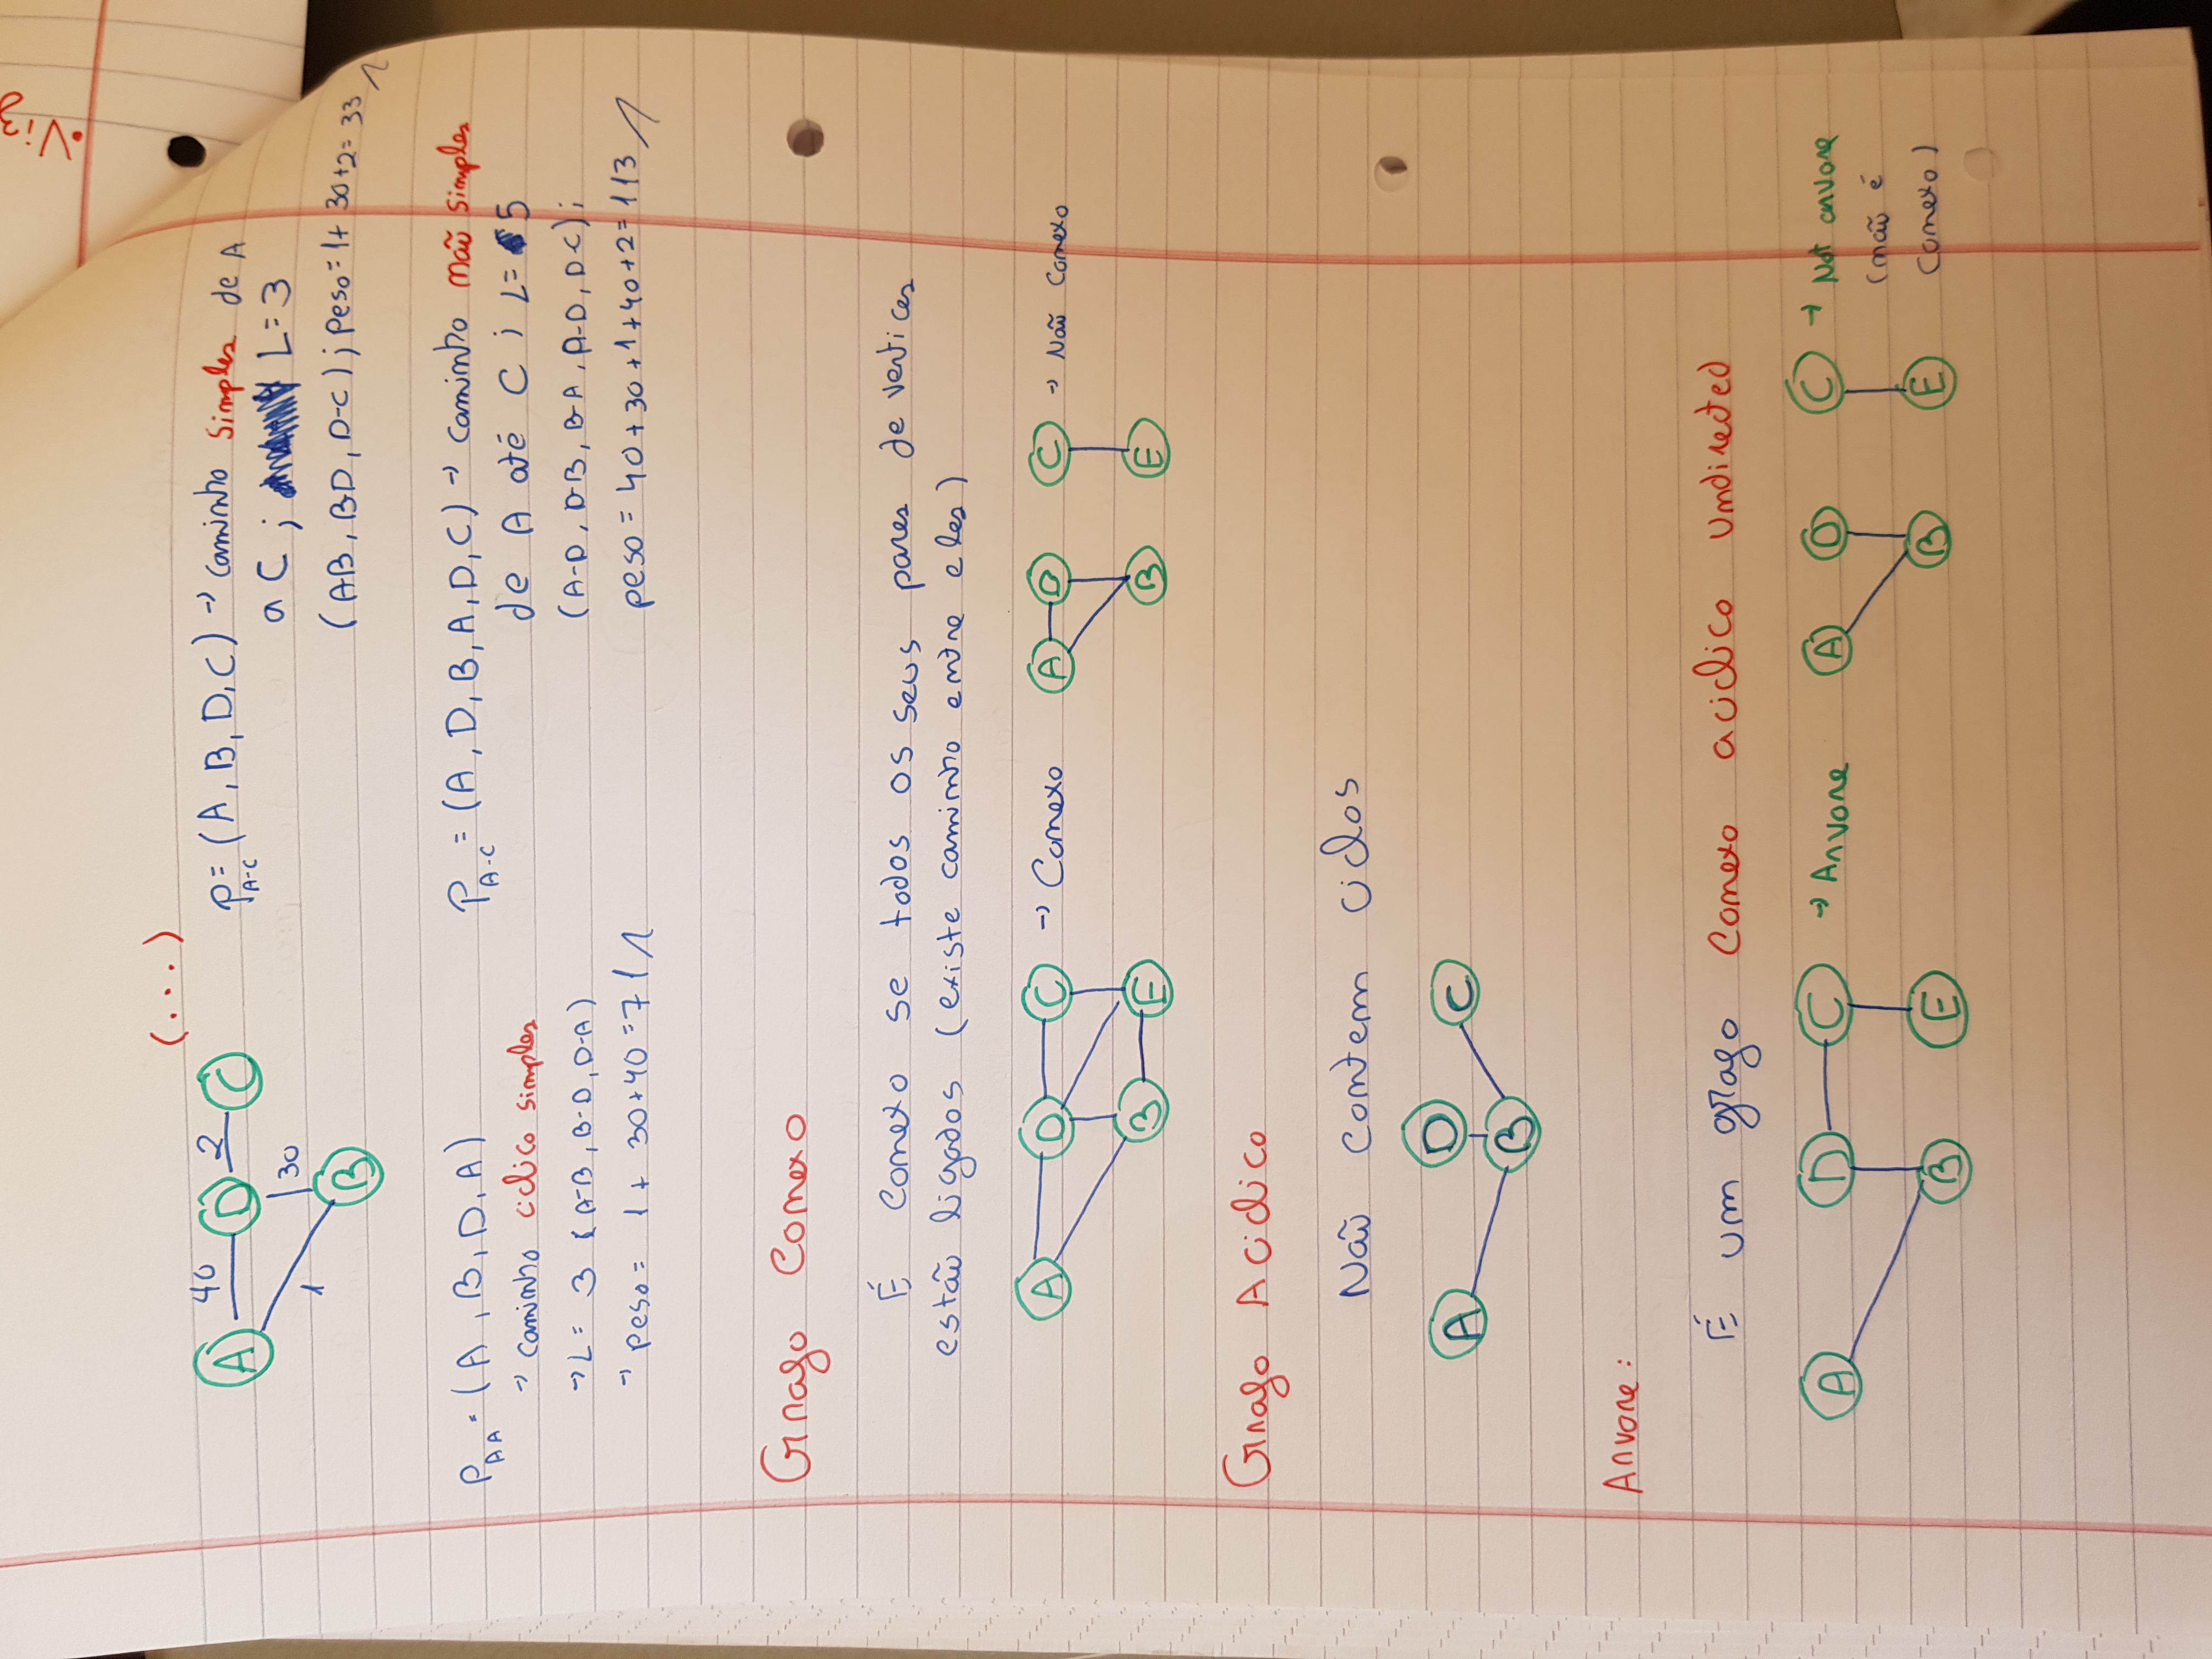 .Viz
(...)
A 40 D 2 C
1 30
B
P A-C = (A, B, D, C) → caminho simples de A
a C ; L = 3
(AB, BD, D-C) ; peso = 1 + 30 + 2 = 33
P AA = (A, B, D, A)
→ caminho ciclico simples
→ L = 3 (A-B, B-D, D-A)
→ peso = 1 + 30 + 40 = 71
P A-C = (A, D, B, A, D, C) → caminho não simples
de A até C ; L = 5
(A-D, D-B, B-A, A-D, D-C) ;
peso = 40 + 30 + 1 + 40 + 2 = 113
Grafo Conexo
É conexo se todos os seus pares de vertices
estão ligados (existe caminho entre eles)
A D C → Conexo A D C → Não Conexo
B E B E
Grafo Aciclico
Não contem ciclos
D
A C
B
Arvore:
É um grafo conexo aciclico undirected
A D C → Arvore A D C → Not arvore
(não é
B E B E conexo)